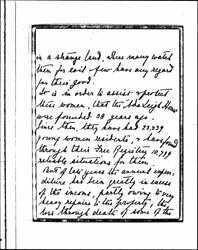 in a strange land, where many watch
them for evil & few have any regard
for their good.
It is in order to assist & protect
these women, that the "Ada Leigh" Homes
were founded 38 years ago.
Since then, they have had 23,539
young women residents, & have found
through their Free Registry 10,779
reliable situations for them.
But of late years the annual expen-
diture has been greatly in excess
of the income, partly owing to very
heavy repairs to the property, & the
loss through death of some of the